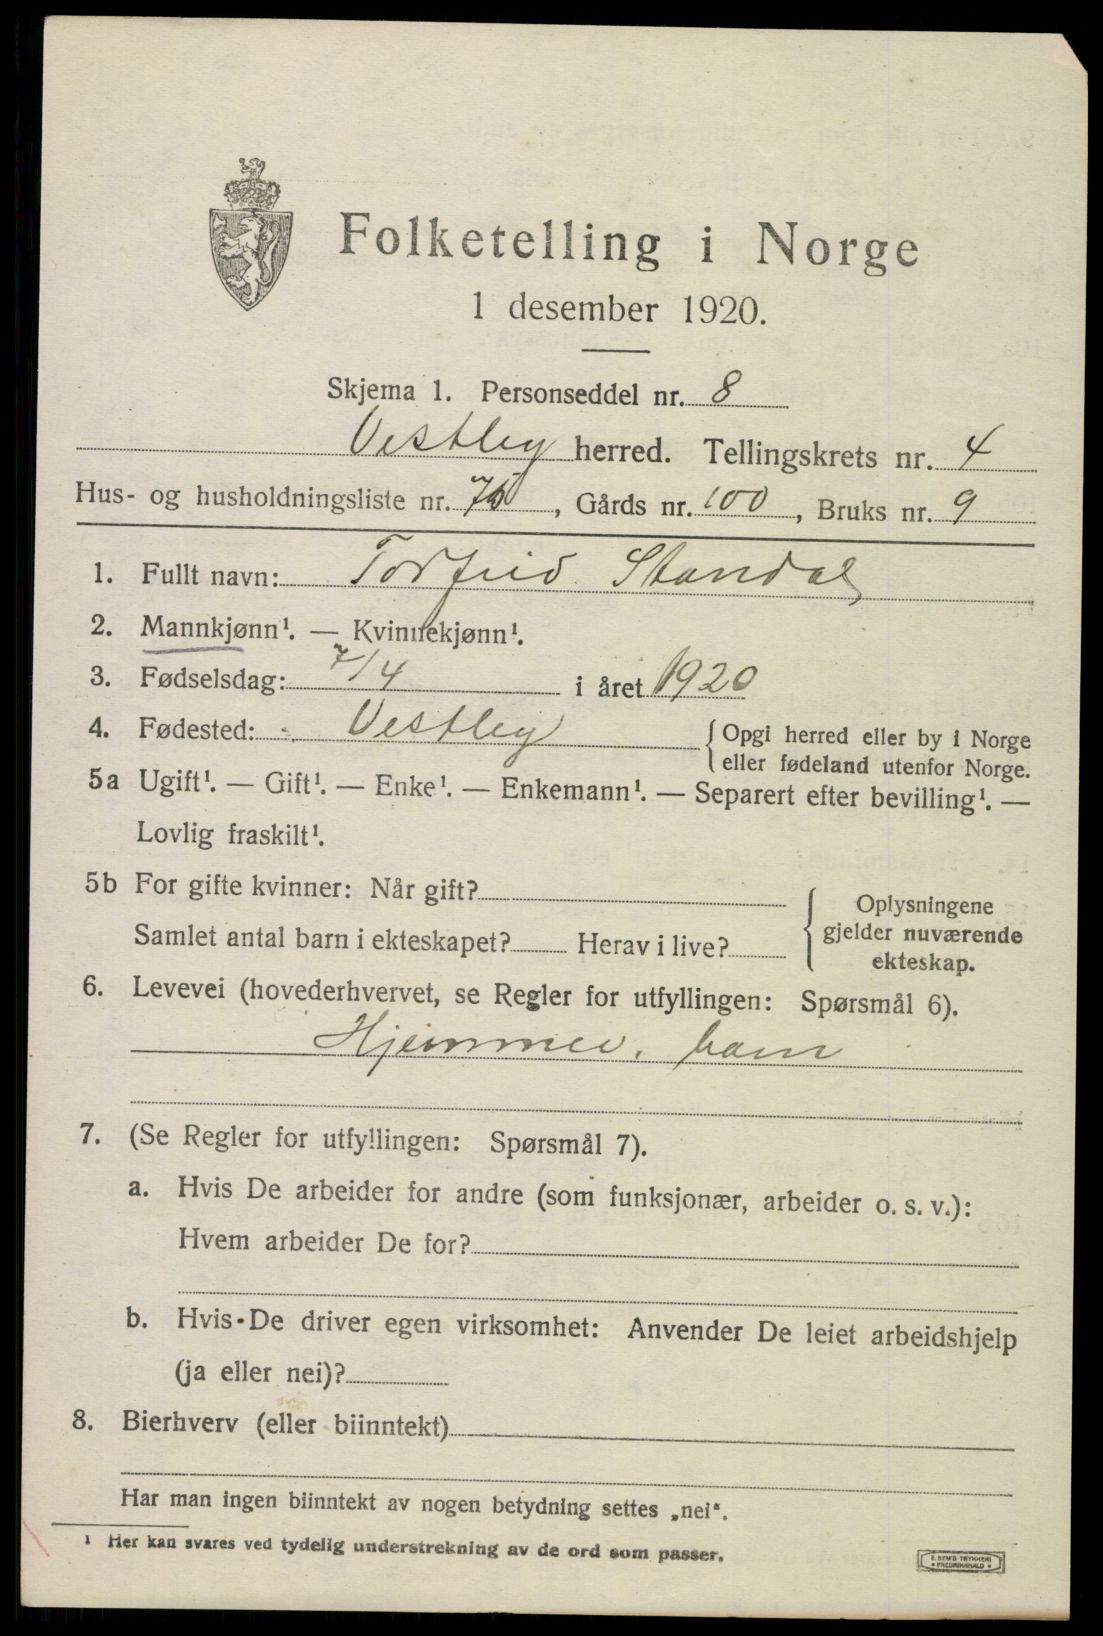 Folketelling i Norge
1 desember 1920.
Skjema 1. Personseddel nr. 8
Vestby herred. Tellingskrets nr. 4
Hus- og husholdningsliste nr. 75, Gårds nr. 100, Bruks nr. 9
1. Fullt navn: Torfrid Standal
2. Mannkjønn¹. — Kvinnekjønn¹.
3. Fødselsdag: 7/4 i året 1920
4. Fødested: Vestby { Opgi herred eller by i Norge
eller fødeland utenfor Norge.
5a Ugift¹. — Gift¹. — Enke¹. — Enkemann¹. — Separert efter bevilling¹. —
Lovlig fraskilt¹.
5b For gifte kvinner: Når gift?
Samlet antal barn i ekteskapet? Herav i live?
Oplysningene
gjelder nuværende
ekteskap.
6. Levevei (hovederhvervet, se Regler for utfyllingen: Spørsmål 6).
Hjemmev. barn
7. (Se Regler for utfyllingen: Spørsmål 7).
a. Hvis De arbeider for andre (som funksjonær, arbeider o. s. v.):
Hvem arbeider De for?
b. Hvis De driver egen virksomhet: Anvender De leiet arbeidshjelp
(ja eller nei)?
8. Bierhverv (eller biinntekt)
Har man ingen biinntekt av nogen betydning settes „nei".
¹ Her kan svares ved tydelig understrekning av de ord som passer.
E. SEM'S TRYKKERI
FREDRIKSHALD